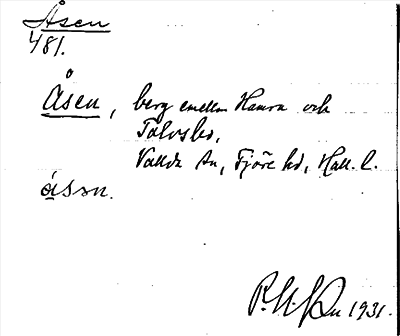 Åsen
481.
Åsen, berg emellan Hanra och
Tolvsbo,
Vallda sn, Fjäre hd, Hall. l.
åsən.
1931.